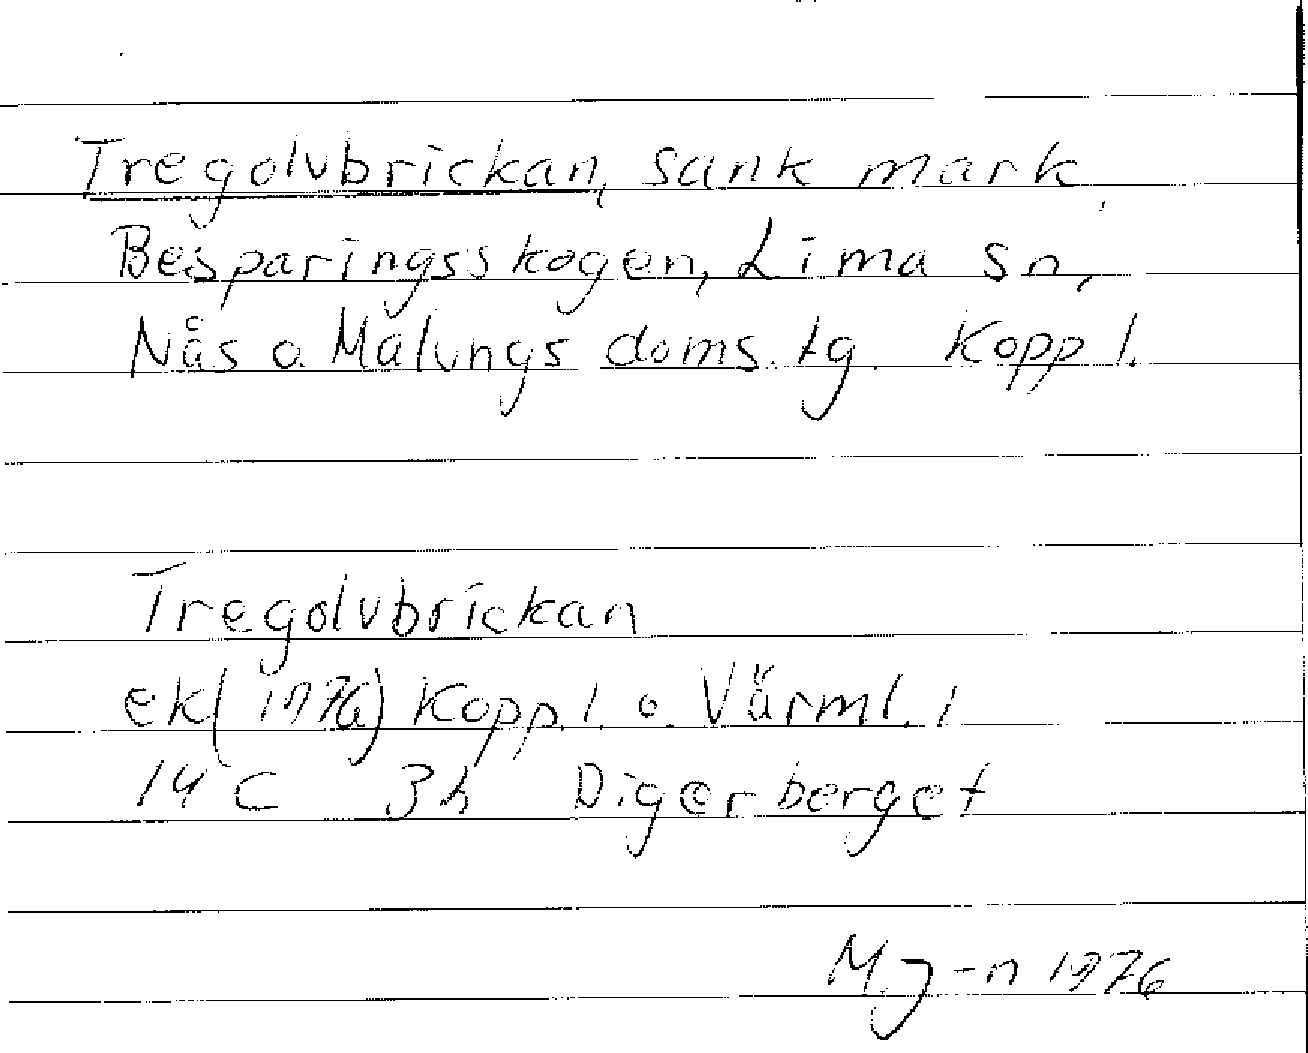 Tregolvbrickan, sank mark,
Besparingsskogen, Lima sn,
Nås o. Malungs doms. tg. Kopp l.
Tregolvbrickan
ek (1976) Kopp. l. o. Värml. l
14 C 3h Digerberget
M J-n 1976